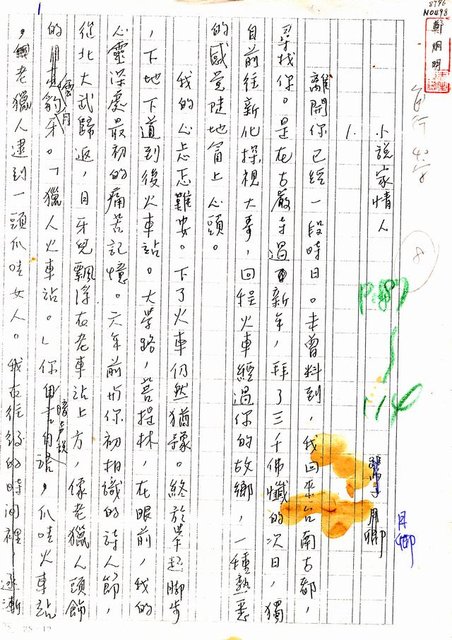 8796
N0498
鄭烱明
每行40字
8
小說家情人
P87
114
月卿
月卿
1.
離開你已經一段時日。未曾料到，我回來台南古都，
尋找你。是在古嚴寺過新年，拜了三千佛懺的次日，獨
自前往新化探視大哥，回程火車經過你的故鄉，一種熟悉
的感覺陡地冒上心頭。
我的心忐忑難安。下了火車仍然猶豫。終於舉起腳步
，下地下道到後火車站。大學路，菩提林，在眼前，我的
心靈深處最初的痛苦記憶。六年前與你初相識的詩人節，
從北大武歸返，目牙兒飄浮在老車站上方，像老獵人頭飾
的雲豹牙。「獵人火車站。」你自言自語，爪哇火車站
，老獵人遇到一頭爪哇女人。我在往後的時間裡逐漸